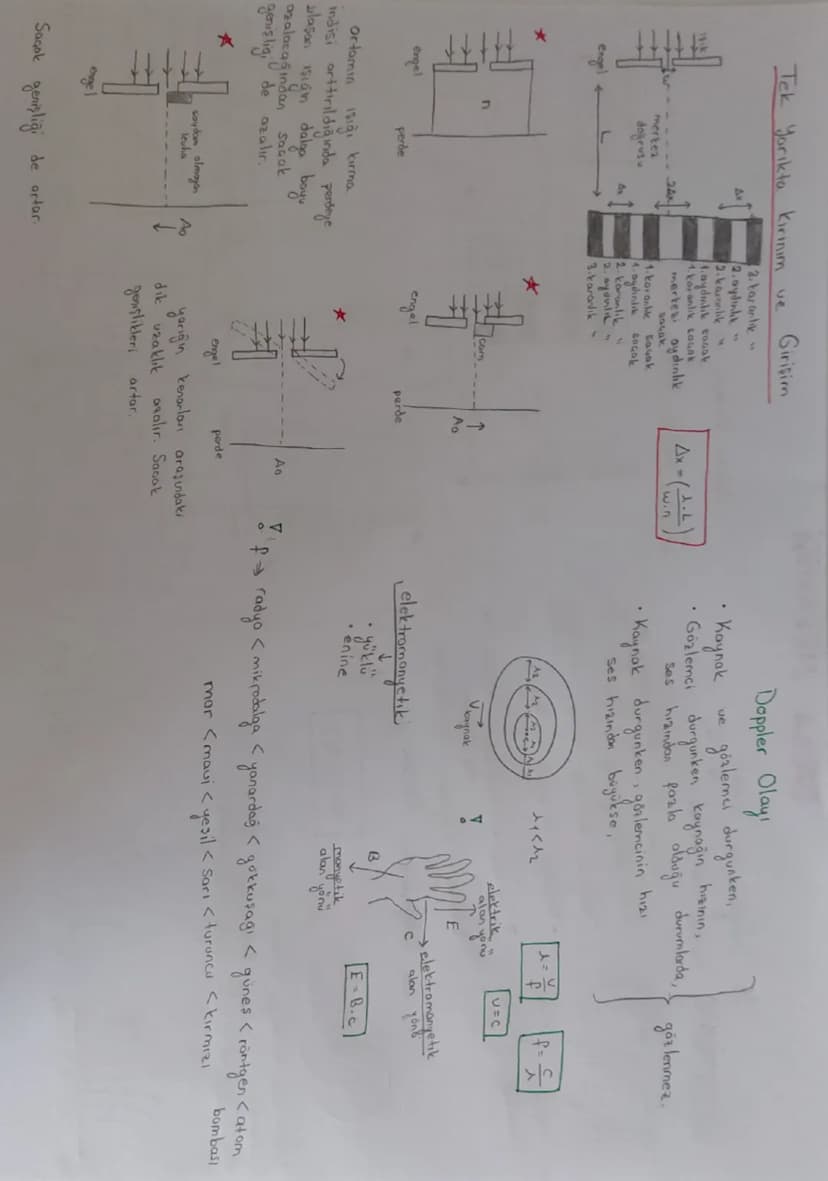 Tek Yarıkta Kırınım ve Girişim
ışık
w
merkez
doğrusu
engel
L
Δx
2Δx
Δx
2. karanlık "
2. aydınlık "
2. karanlık "
1. aydınlık saçak
1. karanlık saçak
merkezi aydınlık
saçak
1. karanlık saçak
1. aydınlık saçak
2. karanlık "
2. aydınlık "
3. karanlık "
Δx = (λ.L / w.n)
engel
n
perde
ortamın ışığı kırma
indisi arttırıldığında perdeye
ulaşan ışığın dalga boyu
azalacağından saçak
genişliği de azalır.
engel
cam
A₀
perde
engel
saydam olmayan
levha
A₀
Saçak genişliği de artar.
engel
A₀
perde
yarığın kenarları arasındaki
dik uzaklık azalır. Saçak
genişlikleri artar.
Doppler Olayı
• Kaynak ve gözlemci durgunken,
• Gözlemci durgunken kaynağın hızının,
ses hızından fazla olduğu durumlarda,
• Kaynak durgunken, gözlemcinin hızı
ses hızından büyükse,
gözlenmez.
λ₂ λ₂
λ₁ λ₁
V kaynak
λ₁ < λ₂
λ = v/f
υ = c
f = c/λ
elektromanyetik
• yüklü
• enine
elektrik
alan yönü
E
B
c
manyetik
alan yönü
elektromanyetik
alan yönü
E = B.c
f → radyo < mikrodalga < yanardağ < gökkuşağı < güneş < röntgen < atom
bombası
mor < mavi < yeşil < sarı < turuncu < kırmızı